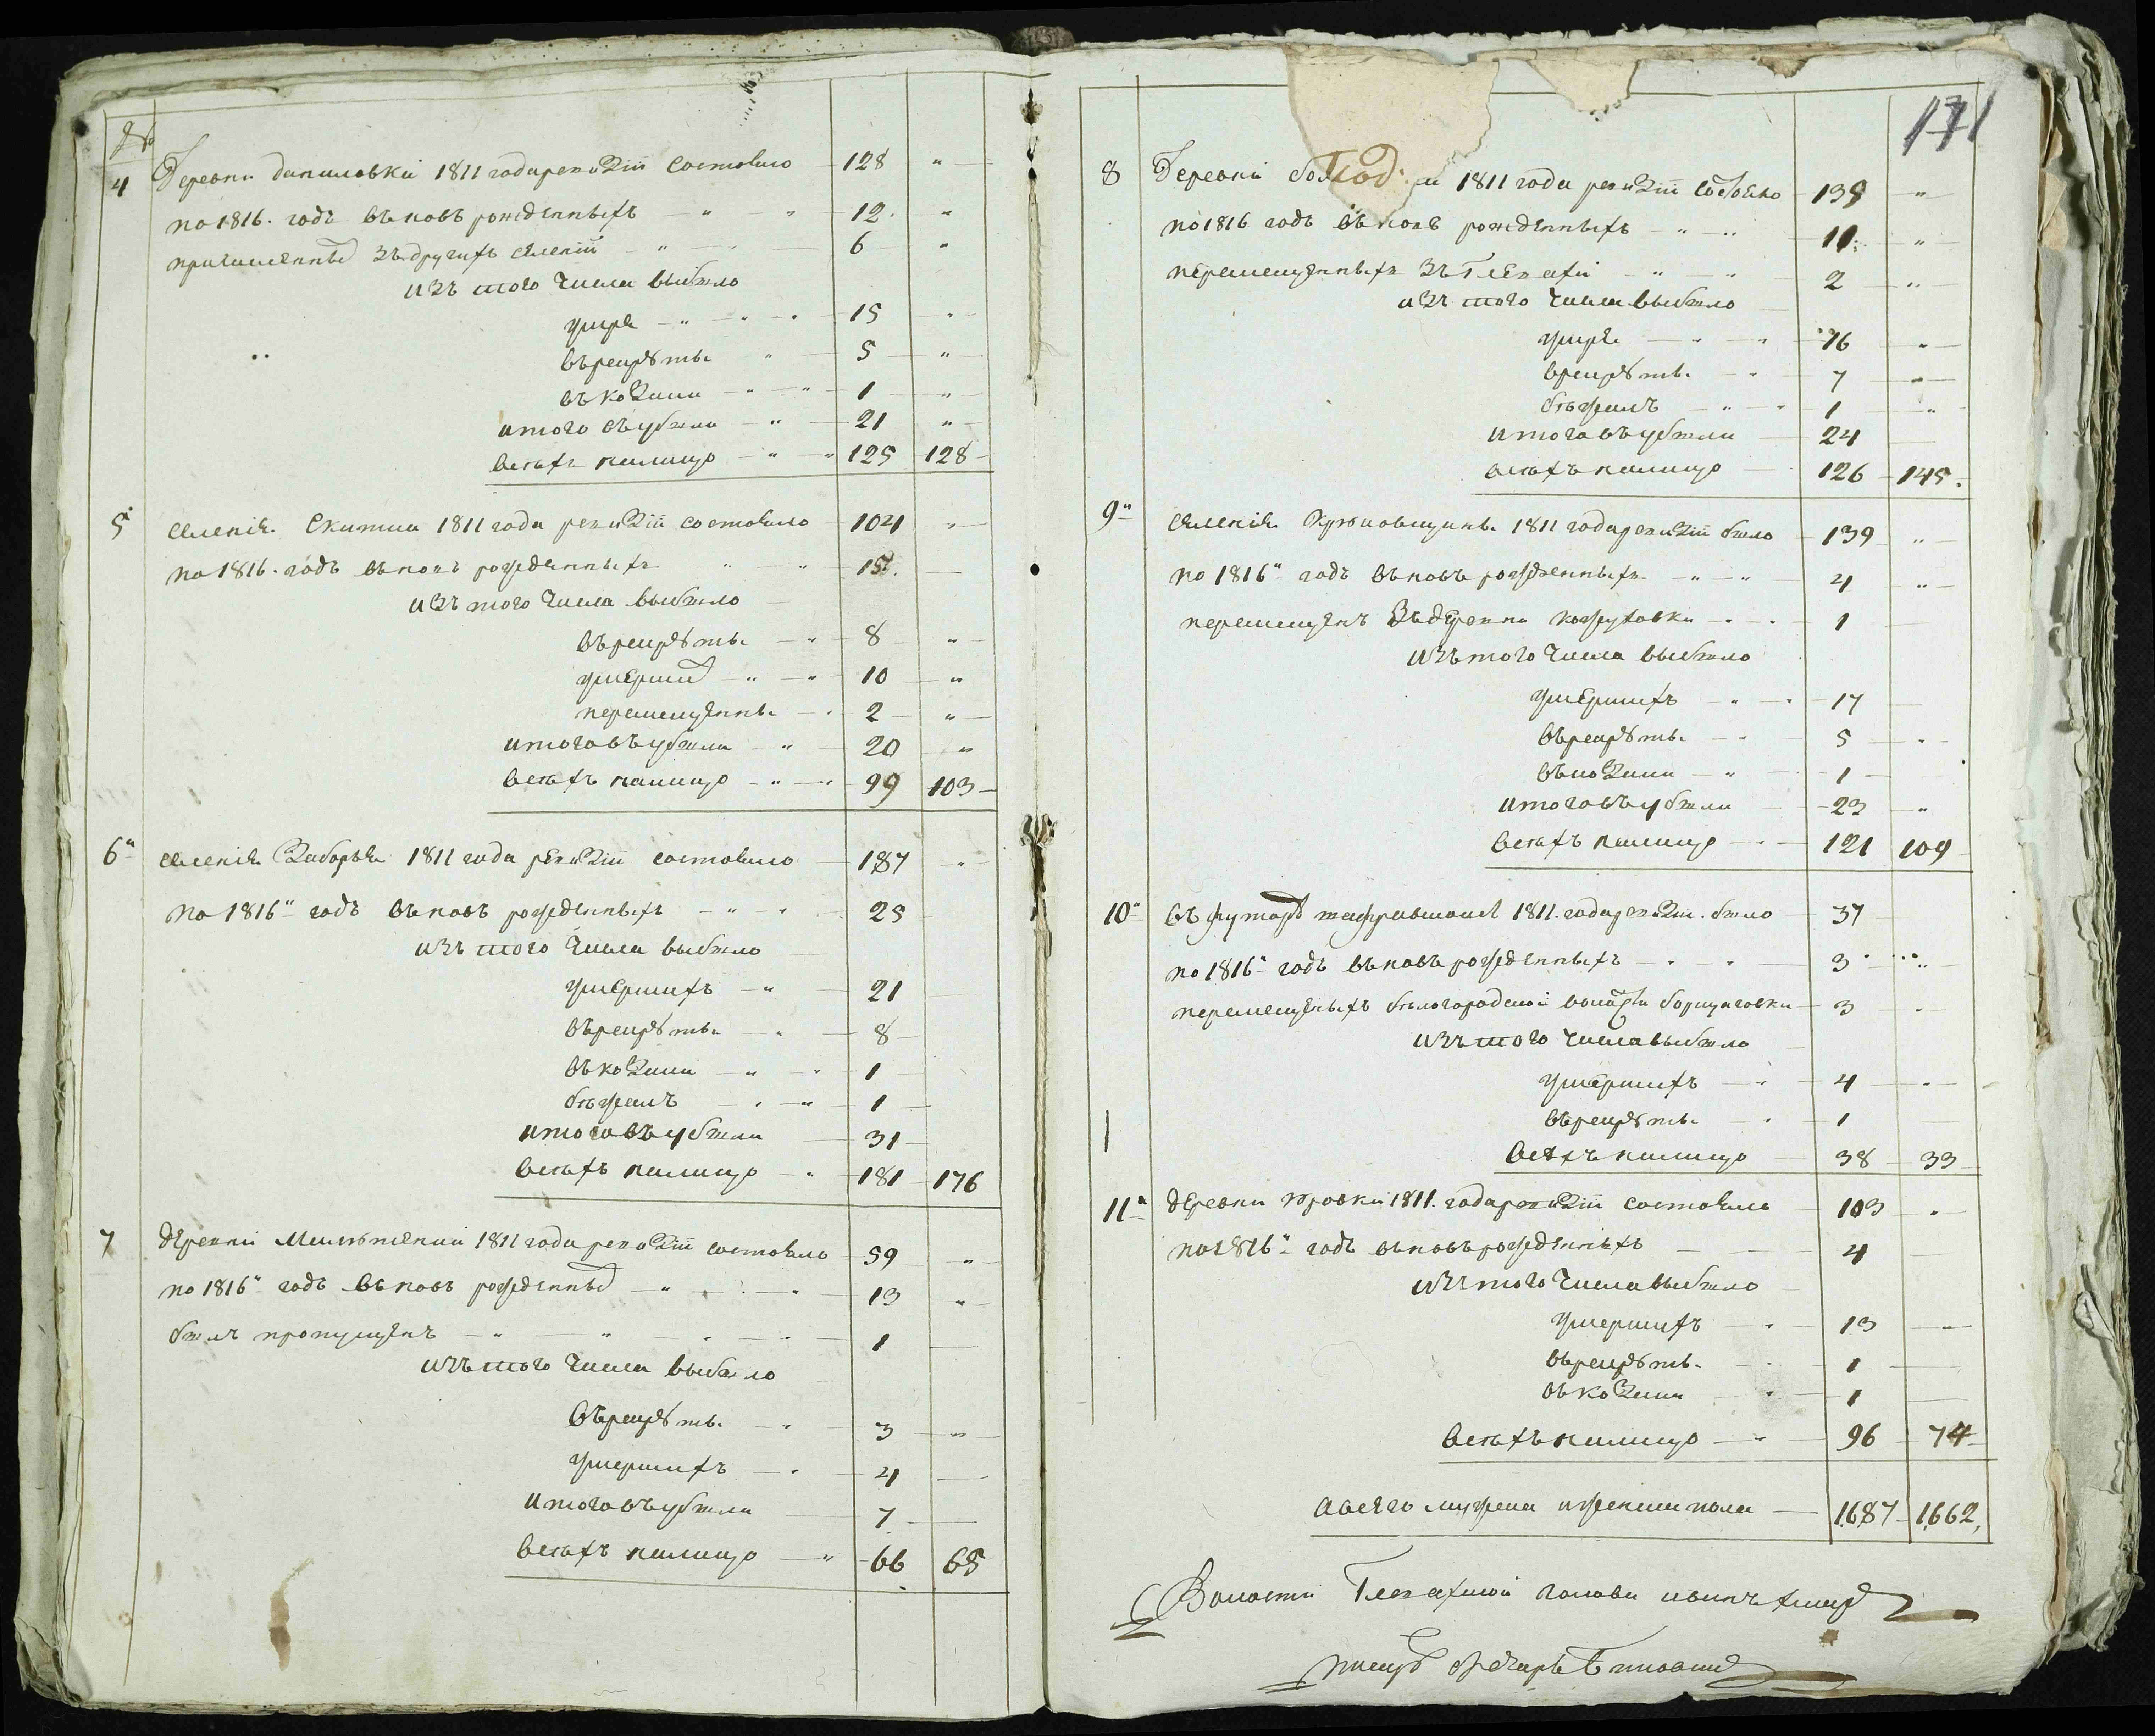 №
4 Деревни Даниловки 1811 года ревизіи состояло 128 "
По 1816. годъ въновь рожденныхъ " " 12. "
причисленны зъ другихъ селеній " 6 "
изъ того числа выбыло
умре " " " 15 "
въ рекруты " 5 "
въ козаки " " 1 "
итого въ убыли " 21 "
всехъ налицо " " 125 128
5 селенія Скитка 1811 года ревизіи состояло 104 "
По 1816. годъ въновь рожденныхъ " " 15.
изъ того числа выбыло
въ рекруты " 8 "
умерши " " 10 "
перемещенны 2 "
итого въ убыли " 20 "
всехъ налицо " " 99 103
6" селенія Заборья 1811 года ревизіи состояло 187 "
По 1816" годъ въновь рожденныхъ " " 25
изъ того числа выбыло
умершихъ " 21
въ рекруты " 8
въ козаки " " 1
бежалъ " " 1
итого въ убыли 31
всехъ налицо " 181 176
7 деревни 1811 года ревизіи состояло 59 "
по 1816" годъ въновь рожденны " " 13 "
былъ пропущенъ " " " " 1
изъ того числа выбыло
въ рекруты " 3 "
умершихъ " 4
итого въ убыли 7
всехъ налицо " 66 65
171
8 Деревни 1811 года ревизіи состояло 138 "
по 1816 годъ въновь рожденныхъ " " 11. "
перемещенныхъ зъ Глевахи " " 2 "
изъ того числа выбыло
умре " " 16 "
в рекруты " 7 "
бежалъ " " 1 "
итого въ убыли 24
всехъ налицо 126 145.
9" селенія Крюковщины 1811 года ревизіи было 139 "
по 1816" годъ въновь рожденныхъ " " 4 "
перемещенъ зъ деревни кожуховки " " 1
изъ того числа выбыло
умершихъ " " 17
въ рекруты " 5 "
въ козаки " 1
итого въ убыли 23 "
всехъ налицо " 121 109
10" въ футоре 1811. года ревизіи. было 37
по 1816" годъ въновь рожденныхъ " " 3 "
перемещеныхъ белогородской волости борщаговки 3 "
изъ того числа выбыло
умершихъ " 4 "
въ рекруты " 1
всехъ налицо 38 33
11" деревни юровки 1811. года ревизіи состояло 103 "
по 1816" годъ въновь рожденныхъ 4
изъ того числа выбыло
умершихъ " 13
въ рекруты 1
въ козаки " 1
всехъ налицо " 96 74
а всего мужеска и женска пола 1687 1662,
Волости Глевахской голова иванъ
писарь